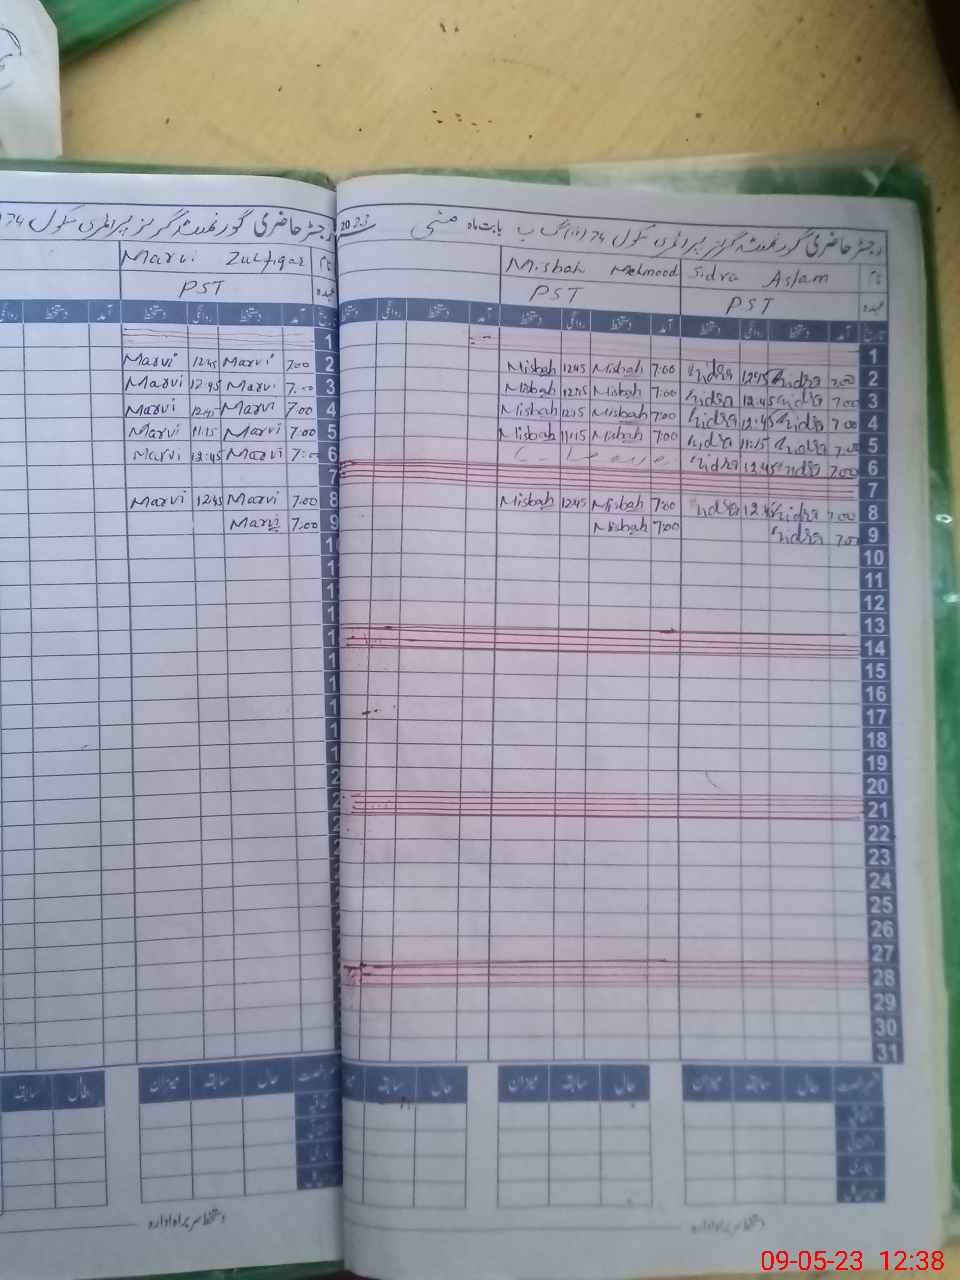 رجسٹر حاضری گورنمنٹ گرلز پرائمری سکول 74
نام Marvi Zulfiqar
عہدہ PST
تاریخ آمد دستخط روانگی دستخط آمد دستخط روانگی
1
2 7:00 Marvi 12:45 Marvi
3 7:00 Marvi 12:45 Marvi
4 7:00 Marvi 12:45 Marvi
5 7:00 Marvi 11:15 Marvi
6 7:00 Marvi 12:45 Marvi
7
8 7:00 Marvi 12:45 Marvi
9 7:00 Marvi
نمبر رخصت حال سابقہ میزان حال سابقہ
دستخط سربراہ ادارہ
رجسٹر حاضری گورنمنٹ گرلز پرائمری سکول 74 بابت ماہ مئی 2023
نام Sidra Aslam Misbah Mehmood
عہدہ PST PST
تاریخ آمد دستخط روانگی دستخط آمد دستخط روانگی دستخط آمد دستخط روانگی
1
2 7:00 Sidra 12:45 Sidra 7:00 Misbah 12:45 Misbah
3 7:00 Sidra 12:45 Sidra 7:00 Misbah 12:45 Misbah
4 7:00 Sidra 12:45 Sidra 7:00 Misbah 12:45 Misbah
5 7:00 Sidra 11:15 Sidra 7:00 Misbah 11:15 Misbah
6 7:00 Sidra 12:45 Sidra
7
8 7:00 Sidra 12:45 Sidra 7:00 Misbah 12:45 Misbah
9 7:00 Sidra 7:00 Misbah
10
11
12
13
14
15
16
17
18
19
20
21
22
23
24
25
26
27
28
29
30
31
حال سابقہ میزان حال سابقہ میزان حال سابقہ
دستخط سربراہ ادارہ
09-05-23 12:38